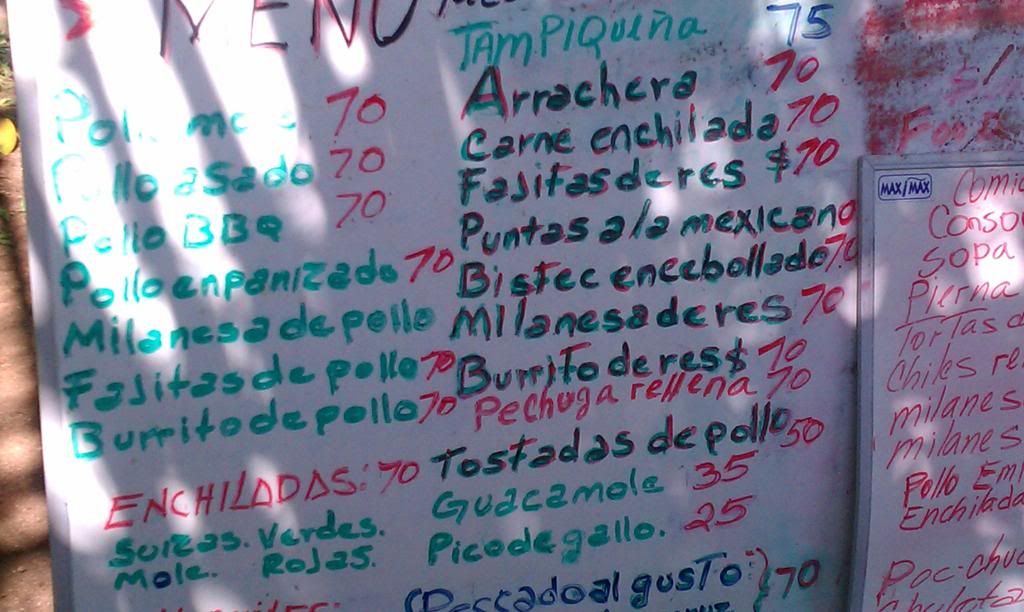 MENU
Pollo asado 70
Pollo BBQ 70
Pollo enpanizado 70
Milanesa de pollo
Fajitas de pollo 70
Burrito de pollo 70
ENCHILADAS: 70
Suizas. Verdes.
Mole. Rojas.
TAMPIQUEÑA 75
Arrachera 70
Carne enchilada 70
Fajitas de res $70
Puntas a la mexicana
Bistec encebollado 70
Milanesa de res 70
Burrito de res $ 70
Pechuga rellena 70
Tostadas de pollo 50
Guacamole 35
Pico de gallo. 25
(Pescado al gusto:} 70
MAX/MAX
Sopa
Pierna
Tortas d
Chiles re
milanes
milanes
Pollo Em
Enchilada
Poc-chuc